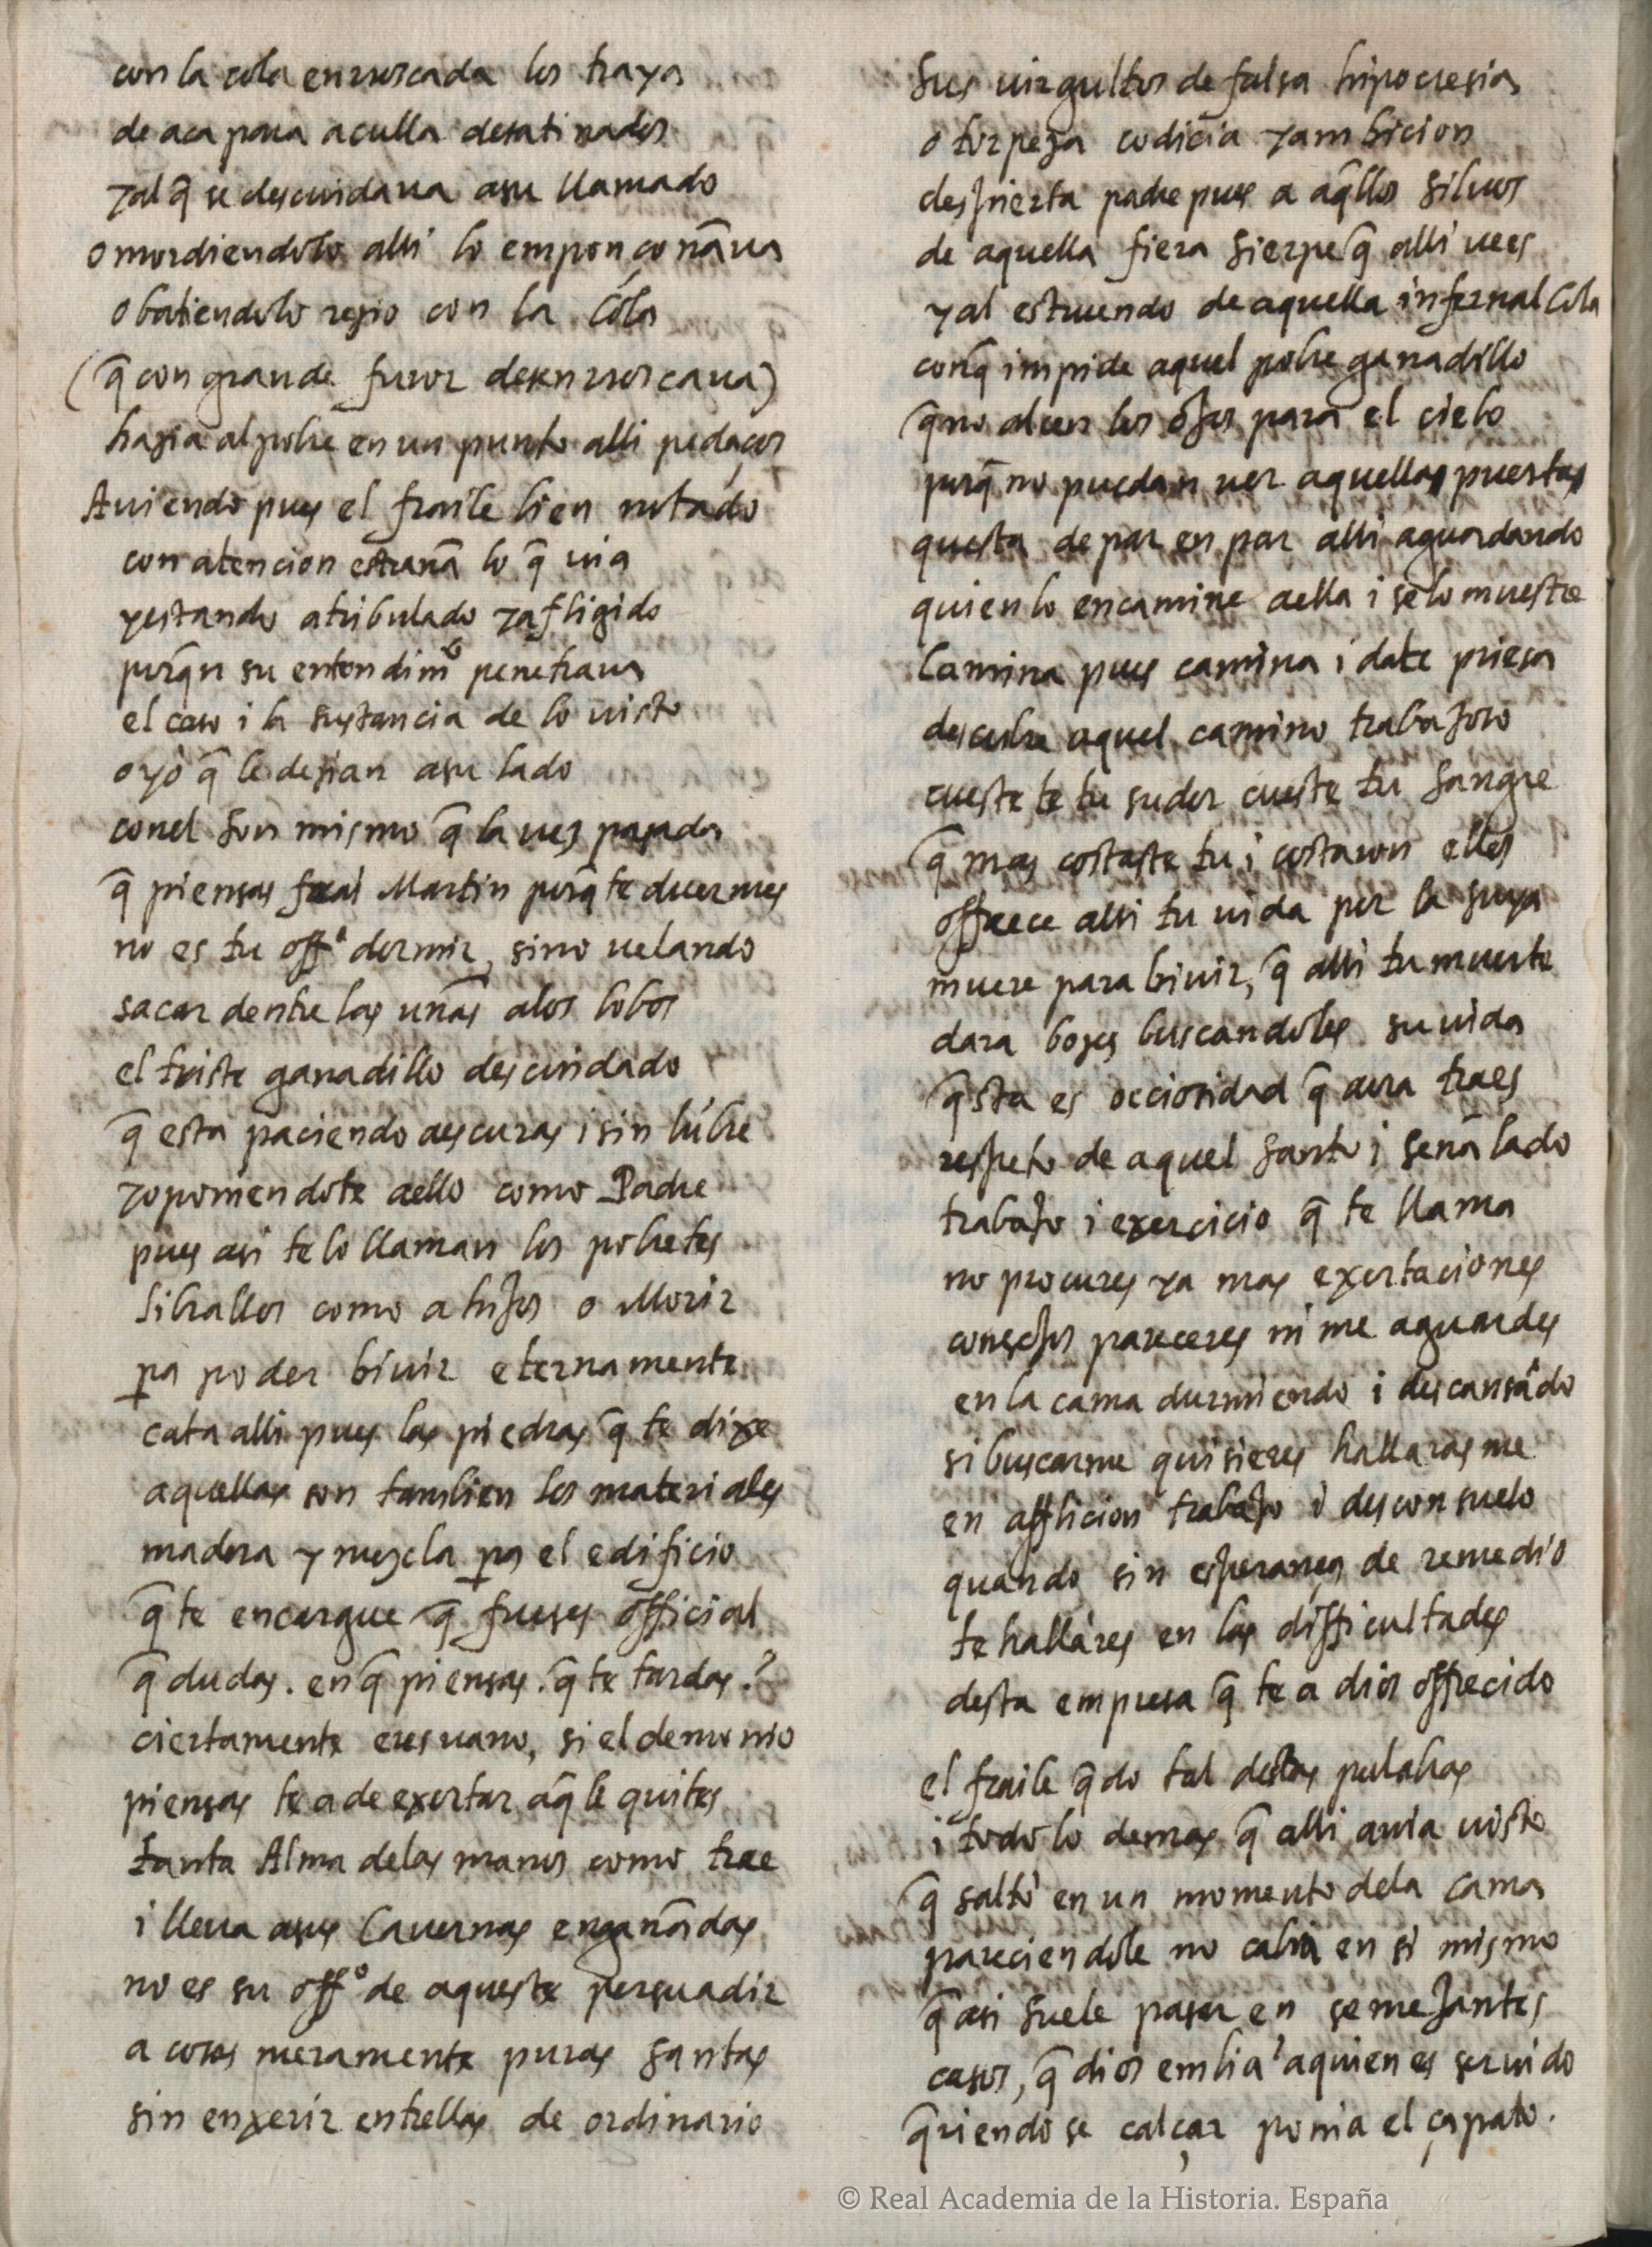 con la cola enrroscada los traya
de aca para aculla desatinados
y al q̃ se descuidaua a su llamado
o mordiendolo alli lo emponçoñaua
o batiendolo regio con la Cola
(q̃ con grande furor desenrroscaua)
hazia al pobre en un punto alli pedaços
Auiendo pues el fraile bien notado
con atencion estraña lo q̃ uia
y estando atribulado y afligido
porq̃n su entendimº penetraua
el caso i la sustancia de lo uisto
oyò q̃ le dezian a su lado
conel son mismo q̃ la uez pasada
q̃ piensas frai Martin porq̃ te duermes
no es tu offº dormir, sino uelando
sacar dentre las uñas alos lobos
el triste ganadillo descuidado
q̃ esta paciendo aescuras i sin lũbre
y oponiendote aello como Padre
pues asi te lo llaman los pobretes
librallos como a hijos o Morir
pa poder biuir eternamente
cata alli pues las piedras q̃ te dixe
aquellas son tambien los materiales
madera y mezcla pa el edificio
q̃ te encargue q̃ fueses official
q̃ dudas. en q̃ piensas. q̃ te tardas?
ciertamente eres uano, si el demonio
piensas te a de exortar aq̃ le quites
tanta Alma delas manos como trae
i lleua asus Cauernas engañadas
no es su offº de aqueste persuadir
a cosas meramente puras santas
sin enxerir entrellas de ordinario
sus uirgultos de falsa hipocresia
o torpeza codicia y ambicion
despierta padre pues a aq̃llos siluos
de aquella fiera sierpe q̃ alli uees
y al estruendo de aquella infernal Cola
conq̃ impide aquel pobre ganadillo
q̃ no alcen los ojos para el cielo
porq̃ no puedan uer aquellas puertas
questa de par en par alli aguardando
quien lo encamine aella i se lo muestre
Camina pues camina i date priesa
descubre aquel camino trabajoso
cueste te tu sudor cueste tu sangre
q̃ mas costaste tu i costaron ellos
offrece alli tu uida por la suya
muere para biuir, q̃ alli tu muerte
dara bozes buscandoles su uida
q̃sta es occiosidad q̃ aora traes
respeto de aquel santo i señalado
trabajo i exercicio q̃ te llama
no procures ya mas exortaciones
consejos pareceres ni me aguardes
en la cama durmiendo i descansãdo
si buscarme quisieres hallarasme
en afflicion trabajo i desconsuelo
quando sin esperança de remedio
te hallares en las difficultades
desta empresa q̃ te a dios offrecido
el fraile q̃do tal destas palabras
i todo lo demas q̃ alli auia uisto
q̃ saltò en un momento dela cama
pareciendole no cabia en si mismo
q̃ asi suele pasar en semejantes
casos, q̃ dios embia a quien es seruido
q̃riendose calçar ponia el çapato.
© Real Academia de la Historia. España